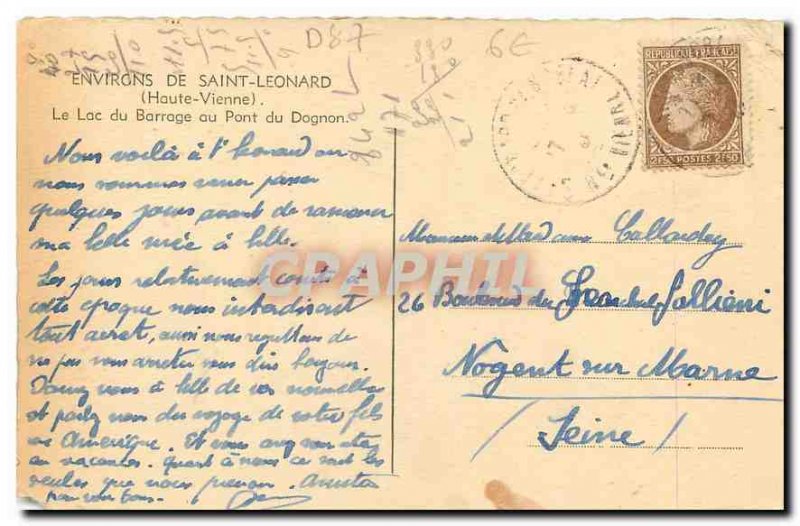 D87
6€
ENVIRONS DE SAINT-LEONARD
(Haute-Vienne).
Le Lac du Barrage au Pont du Dognon.
REPUBLIQUE FRANÇAISE
2F50 POSTES 2F50
Nous voilà à St Léonard où
nous sommes venus passer
quelques jours avant de ramener
ma belle mère à Lille.
Les jours relativement courts à
cette époque nous interdisent
tout arrêt, aussi nous regrettons de
ne pas nous arrêter vous dire bonjour.
Donnez nous à Lille de vos nouvelles
et parlez nous du voyage de votre fils
en Amérique. Et vous avez vous été
en vacances. Quant à nous ce sont les
seules que nous prenons. Amitiés
pour vous tous.
Monsieur et Madame
26 Boulevard du Maréchal Gallieni
Nogent sur Marne
(Seine)
GRAPHIL